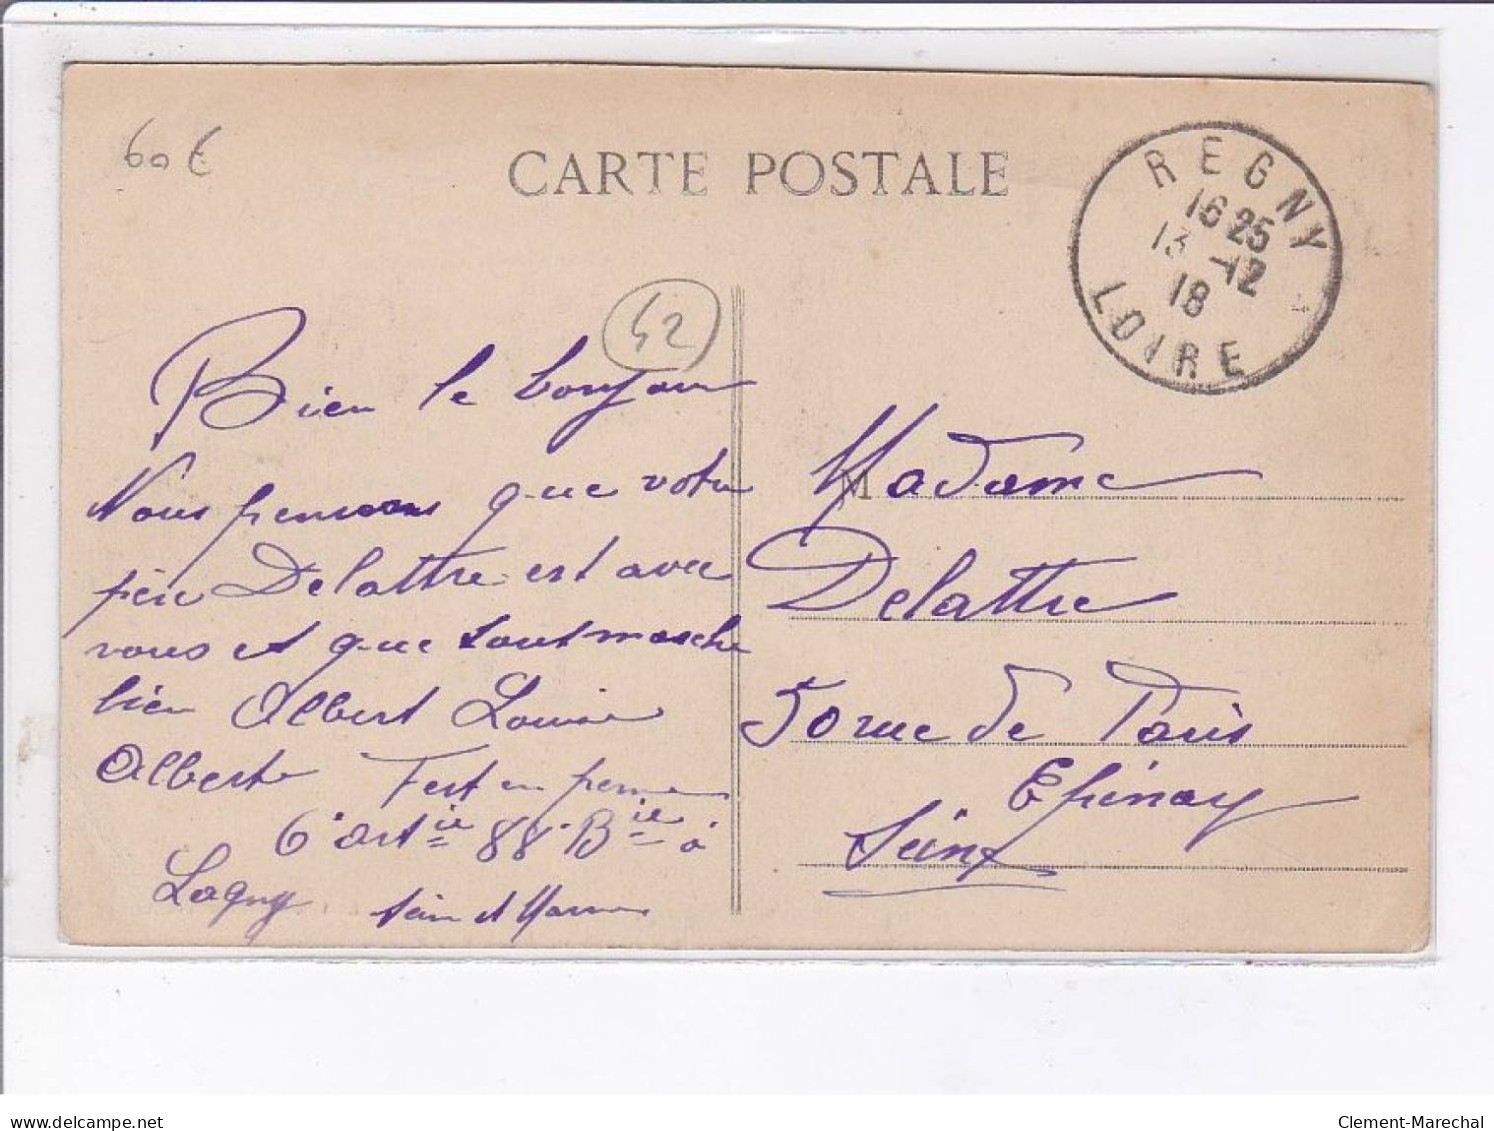 60 €
CARTE POSTALE
REGNY
16 25
13 -12
18
LOIRE
42
Bien le bonjour
Nous pensons que votre
père Delattre est avec
vous et que tout marche
bien Albert Louise
Albert est en perm
6e artie 88e Bie à
Lagny Seine et Marne
M
Madame
Delattre
50 rue de Paris
Epinay
Seine
delcampe.net
Clement-Marechal